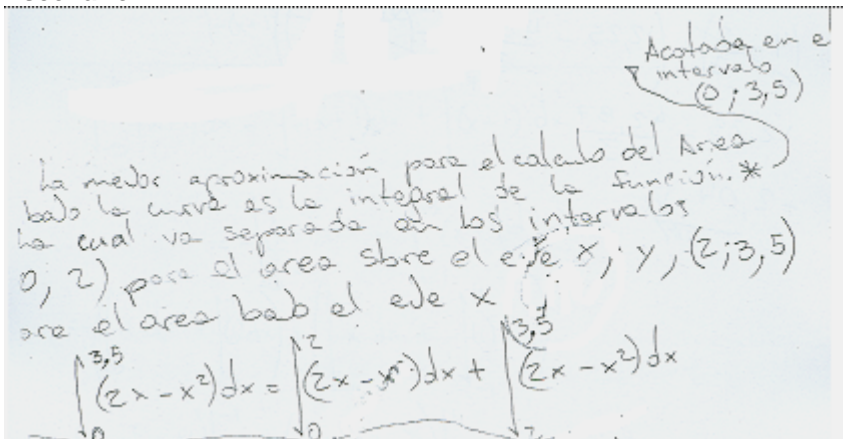 Acotada en e
intervalo
(0 ; 3,5)
La mejor aproximación para el calculo del Area
bajo la curva es la integral de la función.*
La cual va separada en los intervalos
0, 2) para el area sbre el eje x, y, (2;3,5)
ara el area bajo el eje x
∫₀^3,5 (2x - x²)dx = ∫₀^2 (2x - x²)dx + ∫₂^3,5 (2x - x²)dx